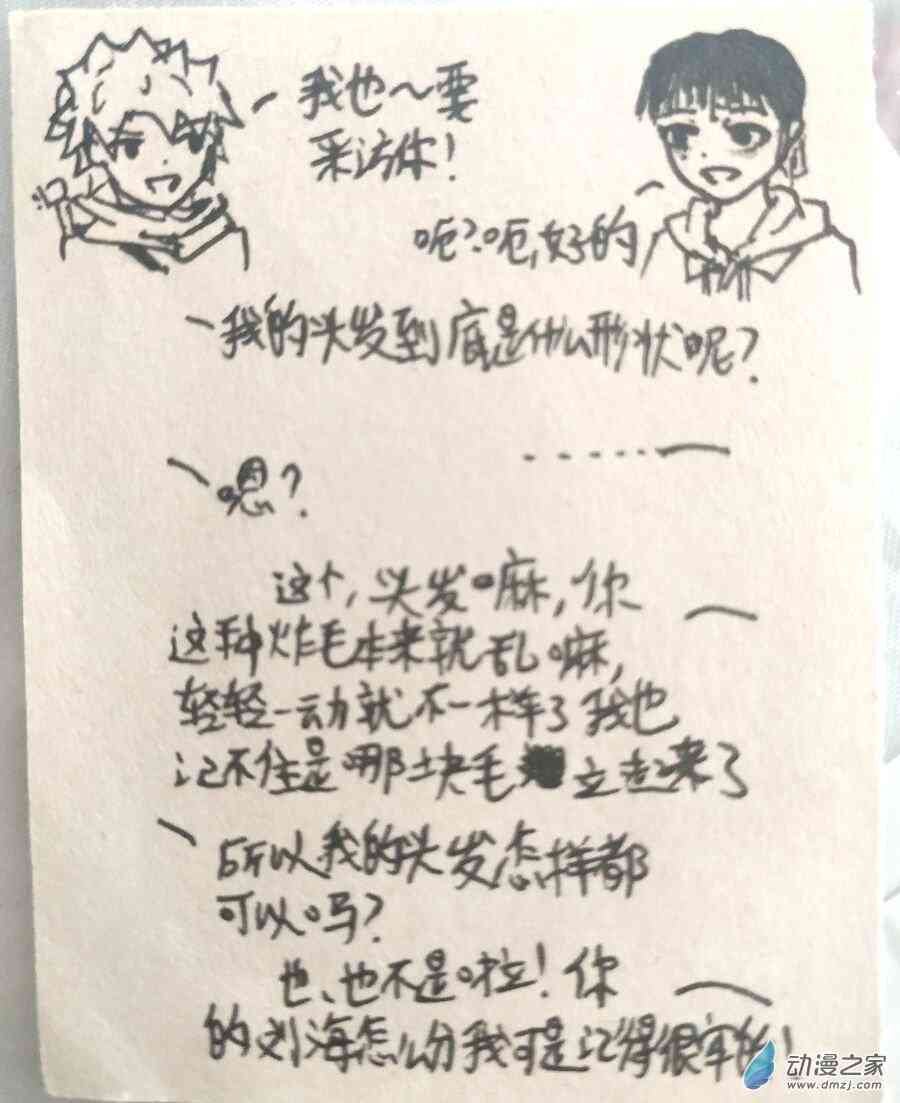 我也～要
采访你！
呃？呃，好的
我的头发到底是什么形状呢？
……
嗯？
这个，头发嘛，你
这种炸毛本来就乱嘛，
轻轻一动就不一样了我也
记不住是哪块毛立起来了
所以我的头发怎样都
可以吗？
也、也不是啦！你
的刘海怎么分我可是记得很牢的！
动漫之家
www.dmzj.com